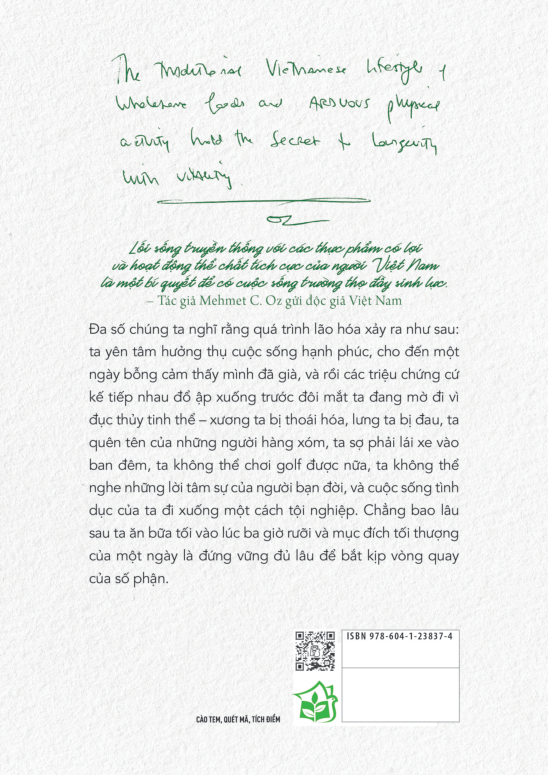 The traditional Vietnamese lifestyle of
wholesome foods and ARDUOUS physical
activity hold the secret to longevity
with vitality.
OZ
Lối sống truyền thống với các thực phẩm có lợi
và hoạt động thể chất tích cực của người Việt Nam
là một bí quyết để có cuộc sống trường thọ đầy sinh lực.
– Tác giả Mehmet C. Oz gửi độc giả Việt Nam
Đa số chúng ta nghĩ rằng quá trình lão hóa xảy ra như sau:
ta yên tâm hưởng thụ cuộc sống hạnh phúc, cho đến một
ngày bỗng cảm thấy mình đã già, và rồi các triệu chứng cứ
kế tiếp nhau đổ ập xuống trước đôi mắt ta đang mờ đi vì
đục thủy tinh thể – xương ta bị thoái hóa, lưng ta bị đau, ta
quên tên của những người hàng xóm, ta sợ phải lái xe vào
ban đêm, ta không thể chơi golf được nữa, ta không thể
nghe những lời tâm sự của người bạn đời, và cuộc sống tình
dục của ta đi xuống một cách tội nghiệp. Chẳng bao lâu
sau ta ăn bữa tối vào lúc ba giờ rưỡi và mục đích tối thượng
của một ngày là đứng vững đủ lâu để bắt kịp vòng quay
của số phận.
ISBN 978-604-1-23837-4
CÀO TEM, QUÉT MÃ, TÍCH ĐIỂM